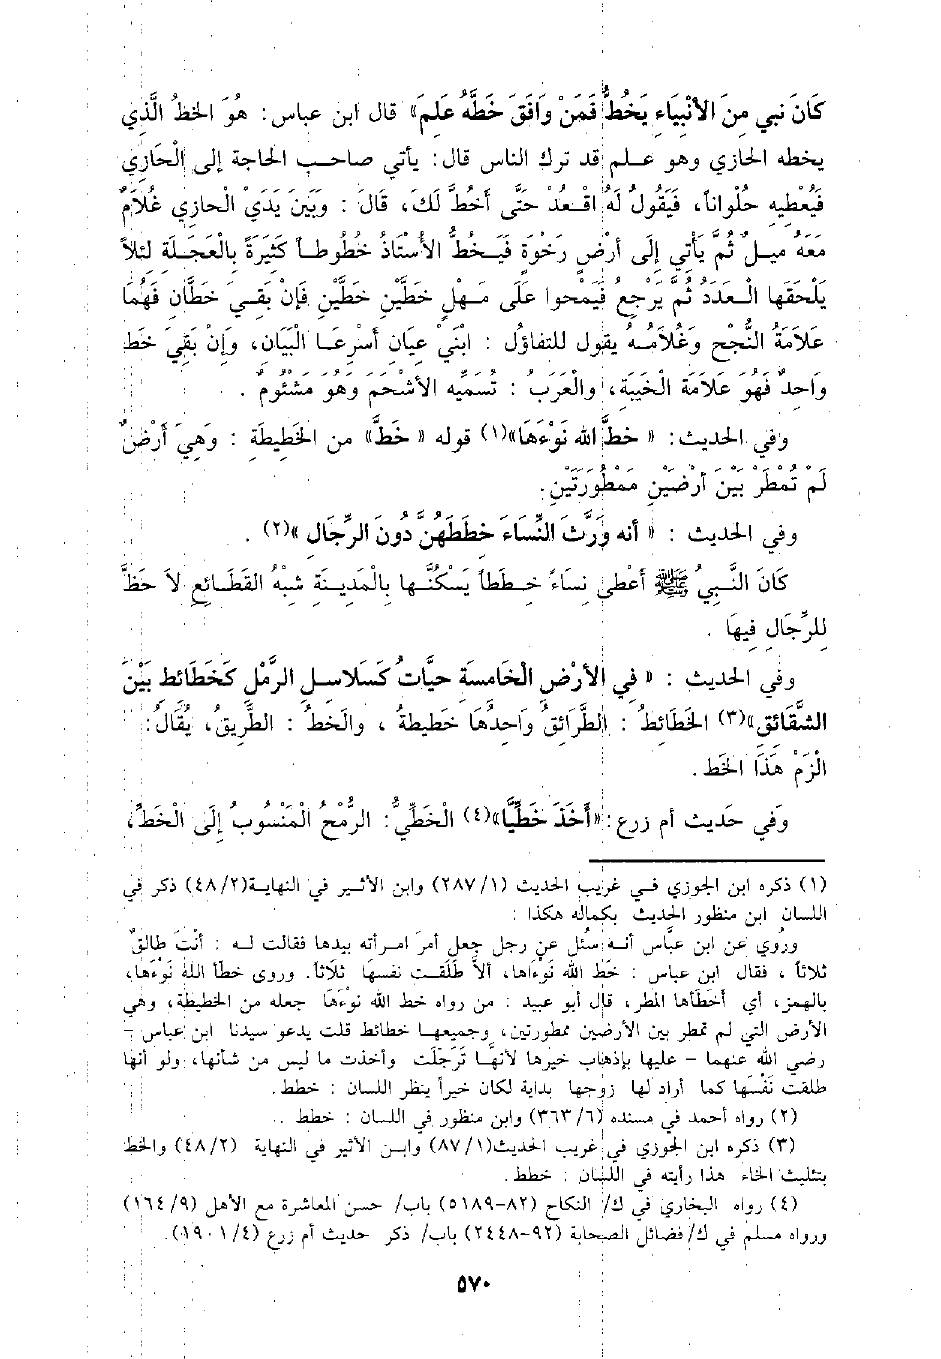 كَانَ نبي مِنَ الأنْبِيَاءِ يَخُطُّ فَمَنْ وَافَقَ خَطَّهُ عَلِمَ» قال ابن عباس: هُوَ الخطُ الَّذي
يخطه الحازي وهو علم قد ترك الناس قال: يأتي صاحب الحاجة إلى الْحَازِي
فَيُعْطِيه حُلْواناً، فَيَقُولُ لَهُ اقْعُدْ حَتَّى أخطَّ لَكَ، قَالَ : وَبَيَن يَدَيْ الْحازي غُلَامٌ
مَعَهُ مِيلٌ ثُمَّ يَأتِي إلَى أرْضٍ رَخْوَةٍ فَيَخُطُّ الأسْتَاذُ خُطُوطاً كَثِيَرَةً بِالْعَجَلَةِ لئلاَّ
يَلْحَقَهَا الْعَدَدُ ثُمَّ يَرْجِعُ فَيَمْحوا عَلَى مَهْلٍ خَطَّيْنِ خَطَّيْنِ فَإنْ بَقِيَ خَطَّانِ فَهُمَا
عَلَامَةُ النُّجْحِ وَغُلَامُهُ يقول للتفاؤل : ابْنَيْ عِيَانِ أسْرِعَا الْبَيَان، وَإنْ بَقِيَ خَط
وَاحِدٌ فَهُوَ عَلَامَة الْخَيبَة، والْعَرَبُ : تُسَمِّيه الأشْحَمَ وَهُوَ مَشْئُومٌ .
وفي الحديث: « خطَّ الله نَوْءَهَا»(١) قوله « خَطَّ» من الخَطِيطَة : وَهِيَ أَرْضٌ
لَمْ تُمْطَرْ بَيْنَ أرْضَيْنِ مَمْطُورَتَيْنِ.
وفي الحديث : « أنه وَرَّثَ النِّسَاءَ خطَطَهُنَّ دُونَ الرِّجَال »(٢) .
كَانَ النَّبِيُ ﷺ أعْطَى نِسَاءً خِطَطاً يَسْكُنَّهَا بِالْمَدِينَةِ شِبْهُ القَطَائِعِ لاَ حَظَّ
للرِّجَال فِيهَا .
وفي الحديث : « في الأرْضِ الْخَامسَة حيَّاتٌ كَسَلَاسلِ الرَّمْلِ كَخَطَائط بَيْنَ
الشَّقَائق»(٣) الخَطَائطُ : الطَّرَائقُ وَاحدُهَا خَطِيطَةُ ، والخَطُ : الطَّرِيقُ، يُقَالُ:
الْزَمْ هَذَا الخَط.
وَفي حَديث أم زرع: «أَخَذَ خَطِّيًّا»(٤) الْخَطِّيُّ: الرُّمْحُ الْمَنْسُوبُ إلَى الْخَطِّ،
(١) ذكره ابن الجوزي في غريب الحديث (٢٨٧/١) وابن الأثير في النهاية(٤٨/٢) ذكر في
اللسان ابن منظور الحديث بكماله هكذا :
ورُوي عن ابن عبَّاس أنه سُئل عن رجل جعل أمرَ امرأته بيدها فقالت له : أنْتَ طالقٌ
ثلاثاً ، فقال ابن عباس : خَط الله نَوْءَاها، ألاَّ طَلَّقت نفسَها ثلاثاً. وروى خطأ اللهُ نَوْءَها،
بالهمز، أي أخطَأها المطر، قال أبو عبيد : من رواه خط الله نوْءَهَا جعله من الخطيطة، وهي
الأرض التي لم تمطر بين الأرضين ممطورتين، وجميعها خطائط قلت يدعو سيدنا ابن عباس -
رضي الله عنهما - عليها بإذهاب خيرها لأنهَّا تَرَجَّلَت وأخذت ما ليس من شأنها، ولو أنها
طلقت نَفْسَها كما أراد لها زوجها بداية لكان خيراً ينظر اللسان : خطط.
(٢) رواه أحمد في مسنده (٣٦٣/٦) وابن منظور في اللسان : خطط .
(٣) ذكره ابن الجوزي في غريب الحديث(٨٧/١) وابن الأثير في النهاية (٤٨/٢) والخط
بتثليث الخاء هذا رأيته في اللسان : خطط.
(٤) رواه البخاري في ك/ النكاح (٨٢-٥١٨٩) باب/ حسن المعاشرة مع الأهل (١٦٤/٩)
ورواه مسلم في ك/ فضائل الصحابة (٩٢-٢٤٤٨) باب/ ذكر حديث أم زرع (١٩٠١/٤).
٥٧٠